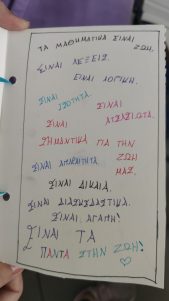 ΤΑ ΜΑΘΗΜΑΤΙΚΑ ΕΙΝΑΙ
ΖΩΗ.
ΕΙΝΑΙ ΛΕΞΕΙΣ.
ΕΙΝΑΙ ΛΟΓΙΚΗ.
ΕΙΝΑΙ
ΙΣΟΤΗΤΑ.
ΕΙΝΑΙ
ΕΙΝΑΙ
ΣΗΜΑΝΤΙΚΑ ΓΙΑ ΤΗΝ
ΖΩΗ
ΕΙΝΑΙ ΑΠΑΡΑΙΤΗΤΑ.
ΜΑΣ.
ΕΙΝΑΙ ΔΙΚΑΙΑ.
ΕΙΝΑΙ ΔΙΑΣΚΕΔΑΣΤΙΚΑ.
ΕΙΝΑΙ ΑΓΑΠΗ!
ΕΙΝΑΙ ΤΑ
ΠΑΝΤΑ ΣΤΗΝ ΖΩΗ!